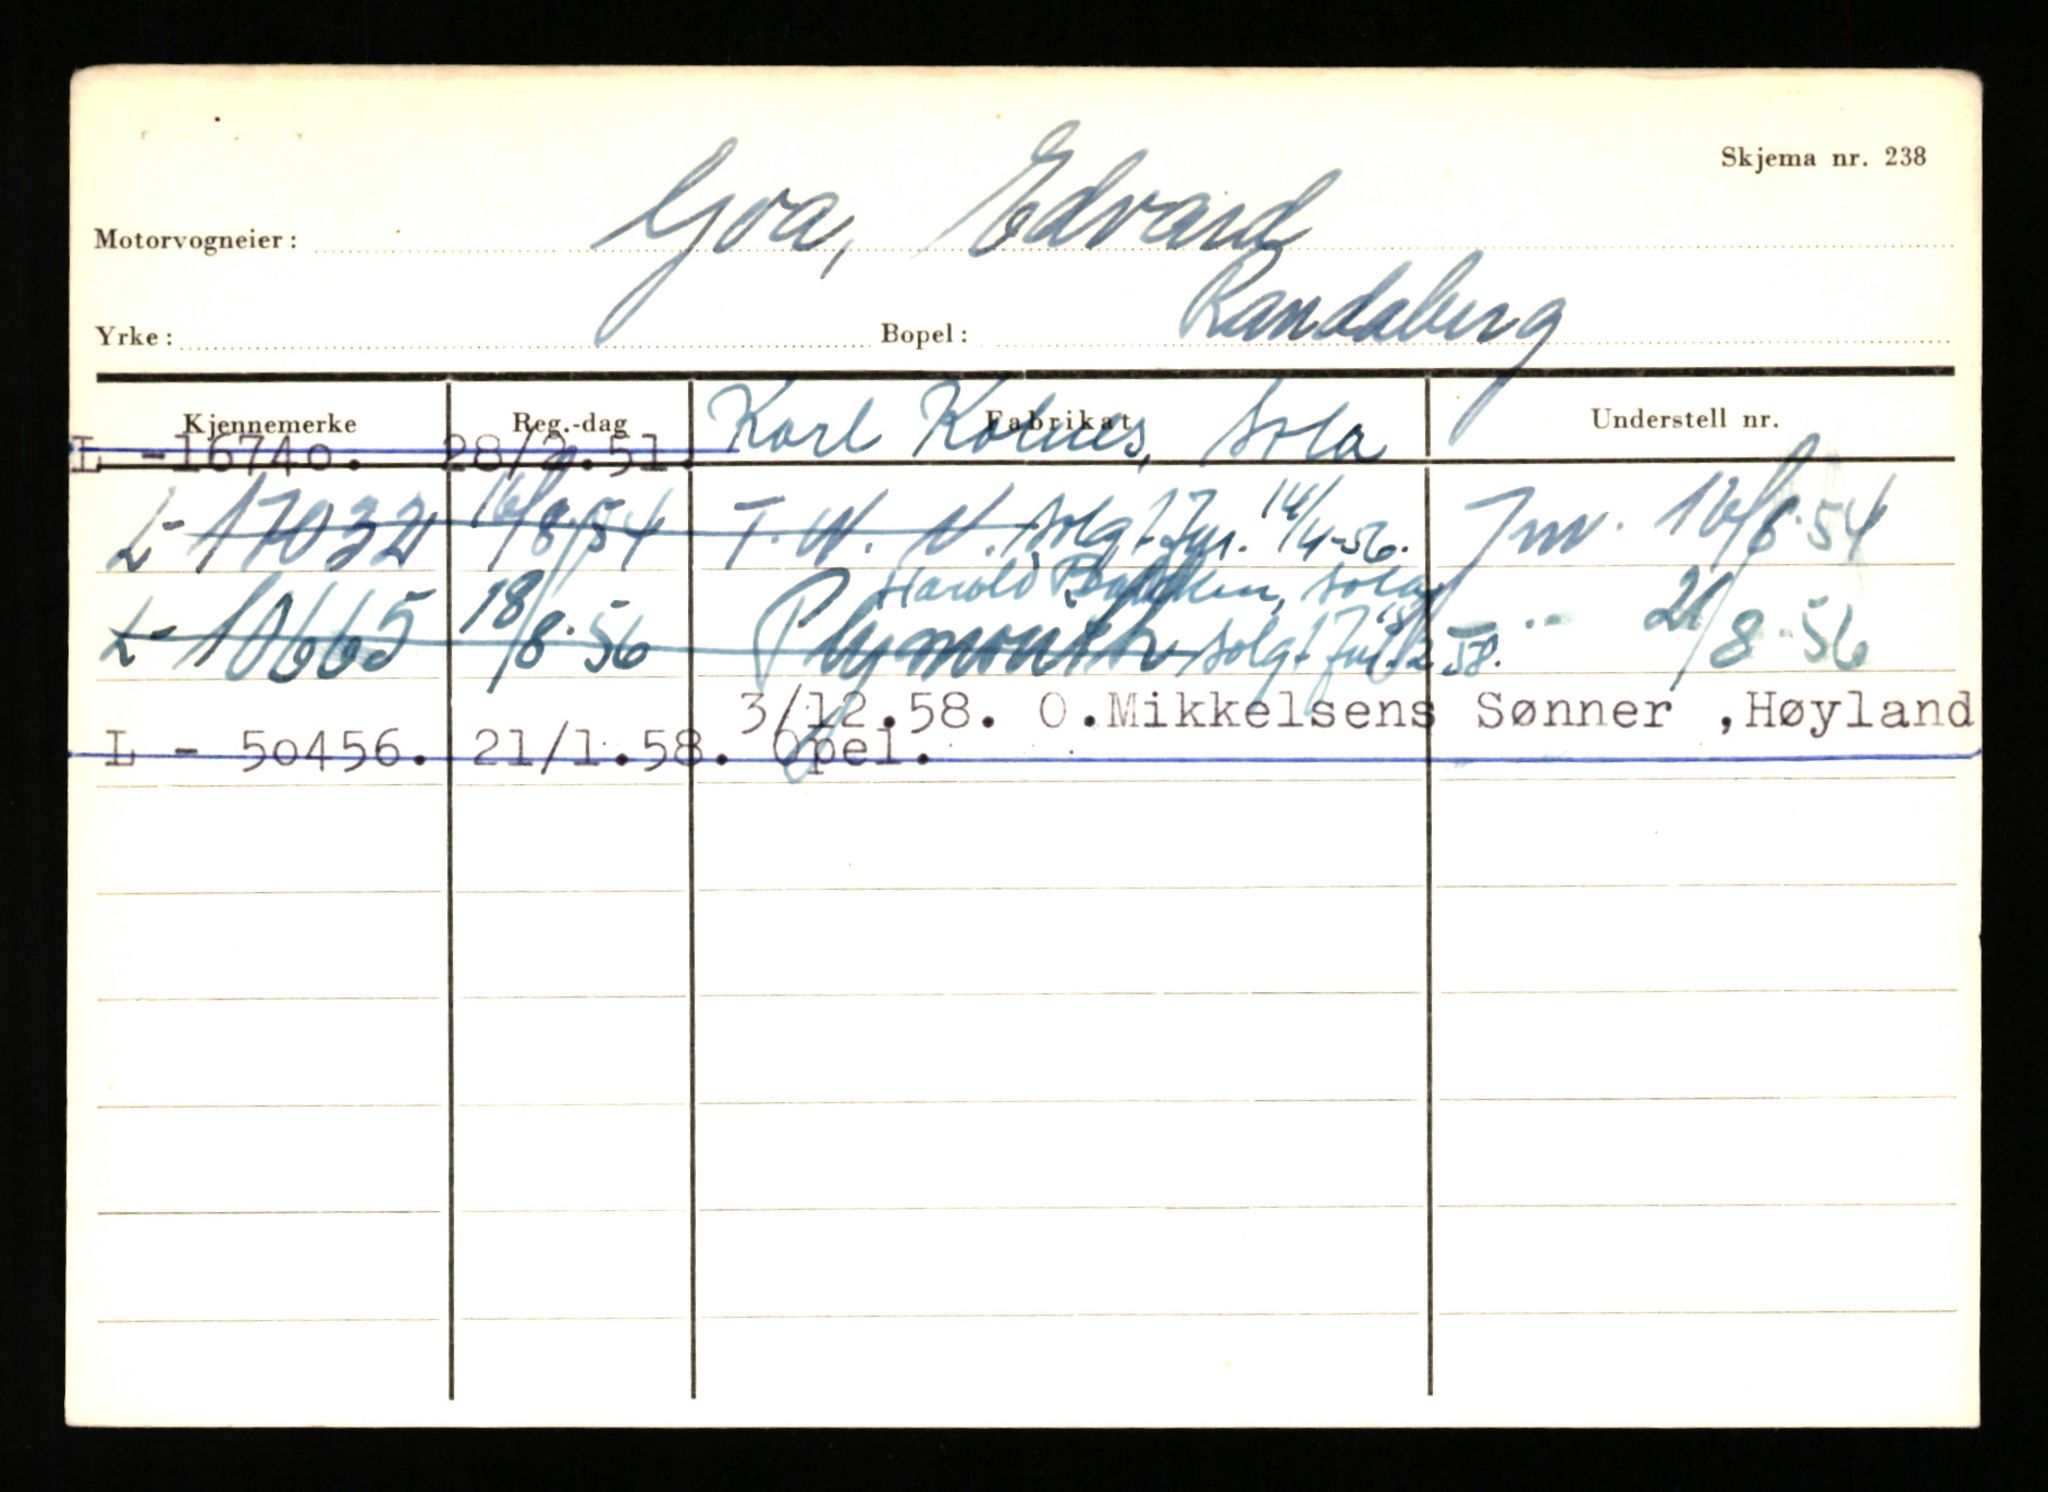 Skjema nr. 238
Motorvogneier: Goa, Edvard
Yrke: Bopel: Randaberg
Kjennemerke Reg.-dag Fabrikat Understell nr.
L -16740. 28/2.51. Karl Kolnes, Sola
L- 17032 16/8.54 T. W. N. solgt 14/4-56. 16/8.54
Harold Sola
L- 10665 18/8.56 Plymouth solgt 58. 21/8-56
3/12.58. O.Mikkelsens Sønner ,Høyland
L - 50456. 21/1.58. Opel.